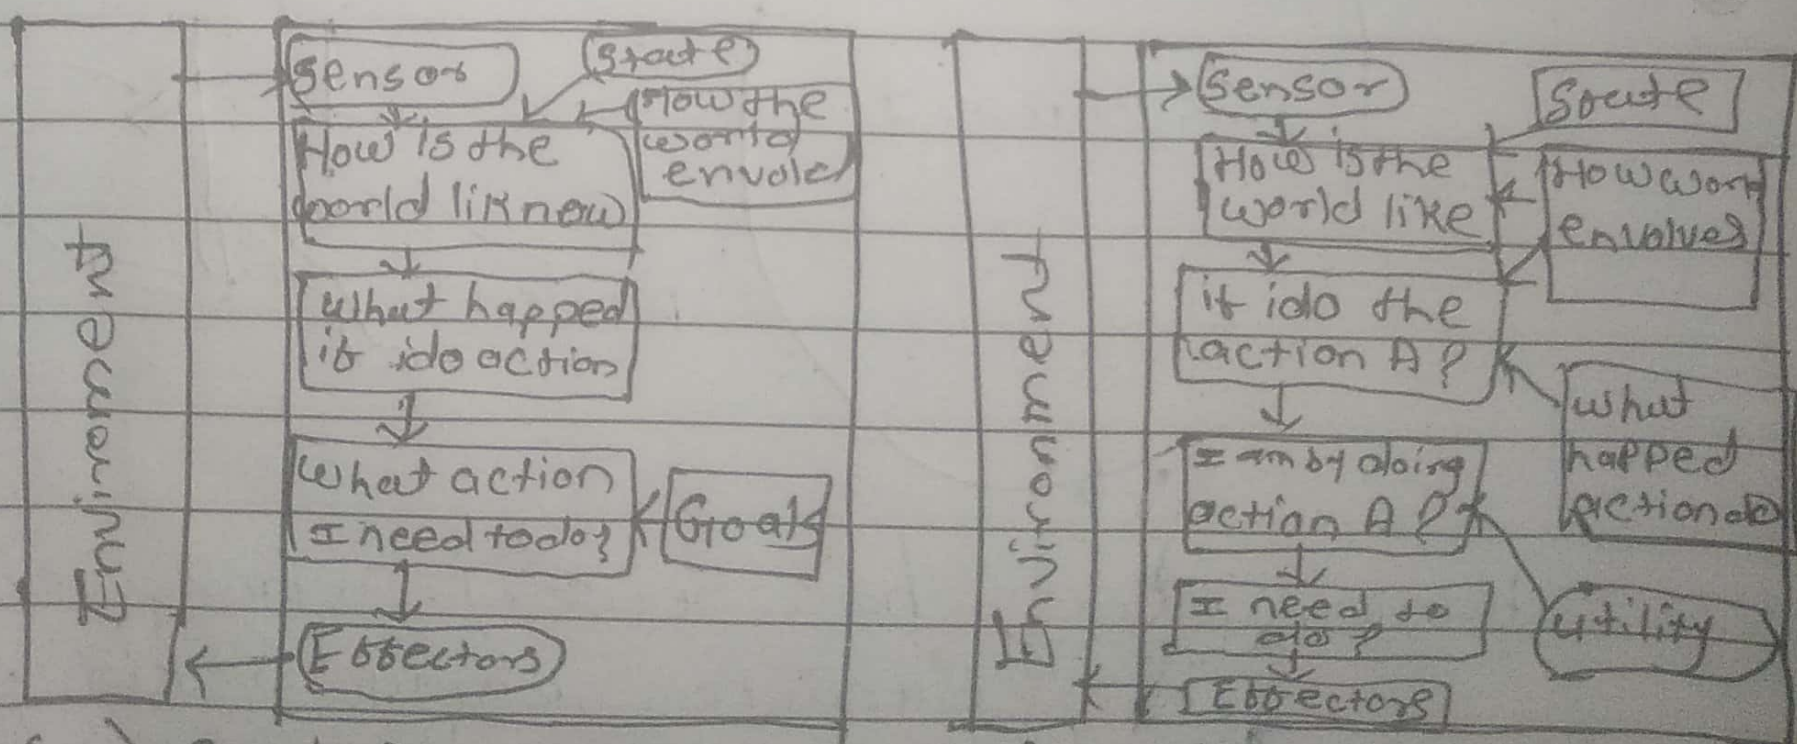 Environment
Sensor
State
How the
world
envolve
How is the
world lik now
what happed
if i do action
what action
I need to do?
Goals
Effectors
Environment
Sensor
State
How is the
world like
How work
envolves
if i do the
action A?
what
happed
action do
I am by doing
action A?
I need to
do?
utility
Effectors